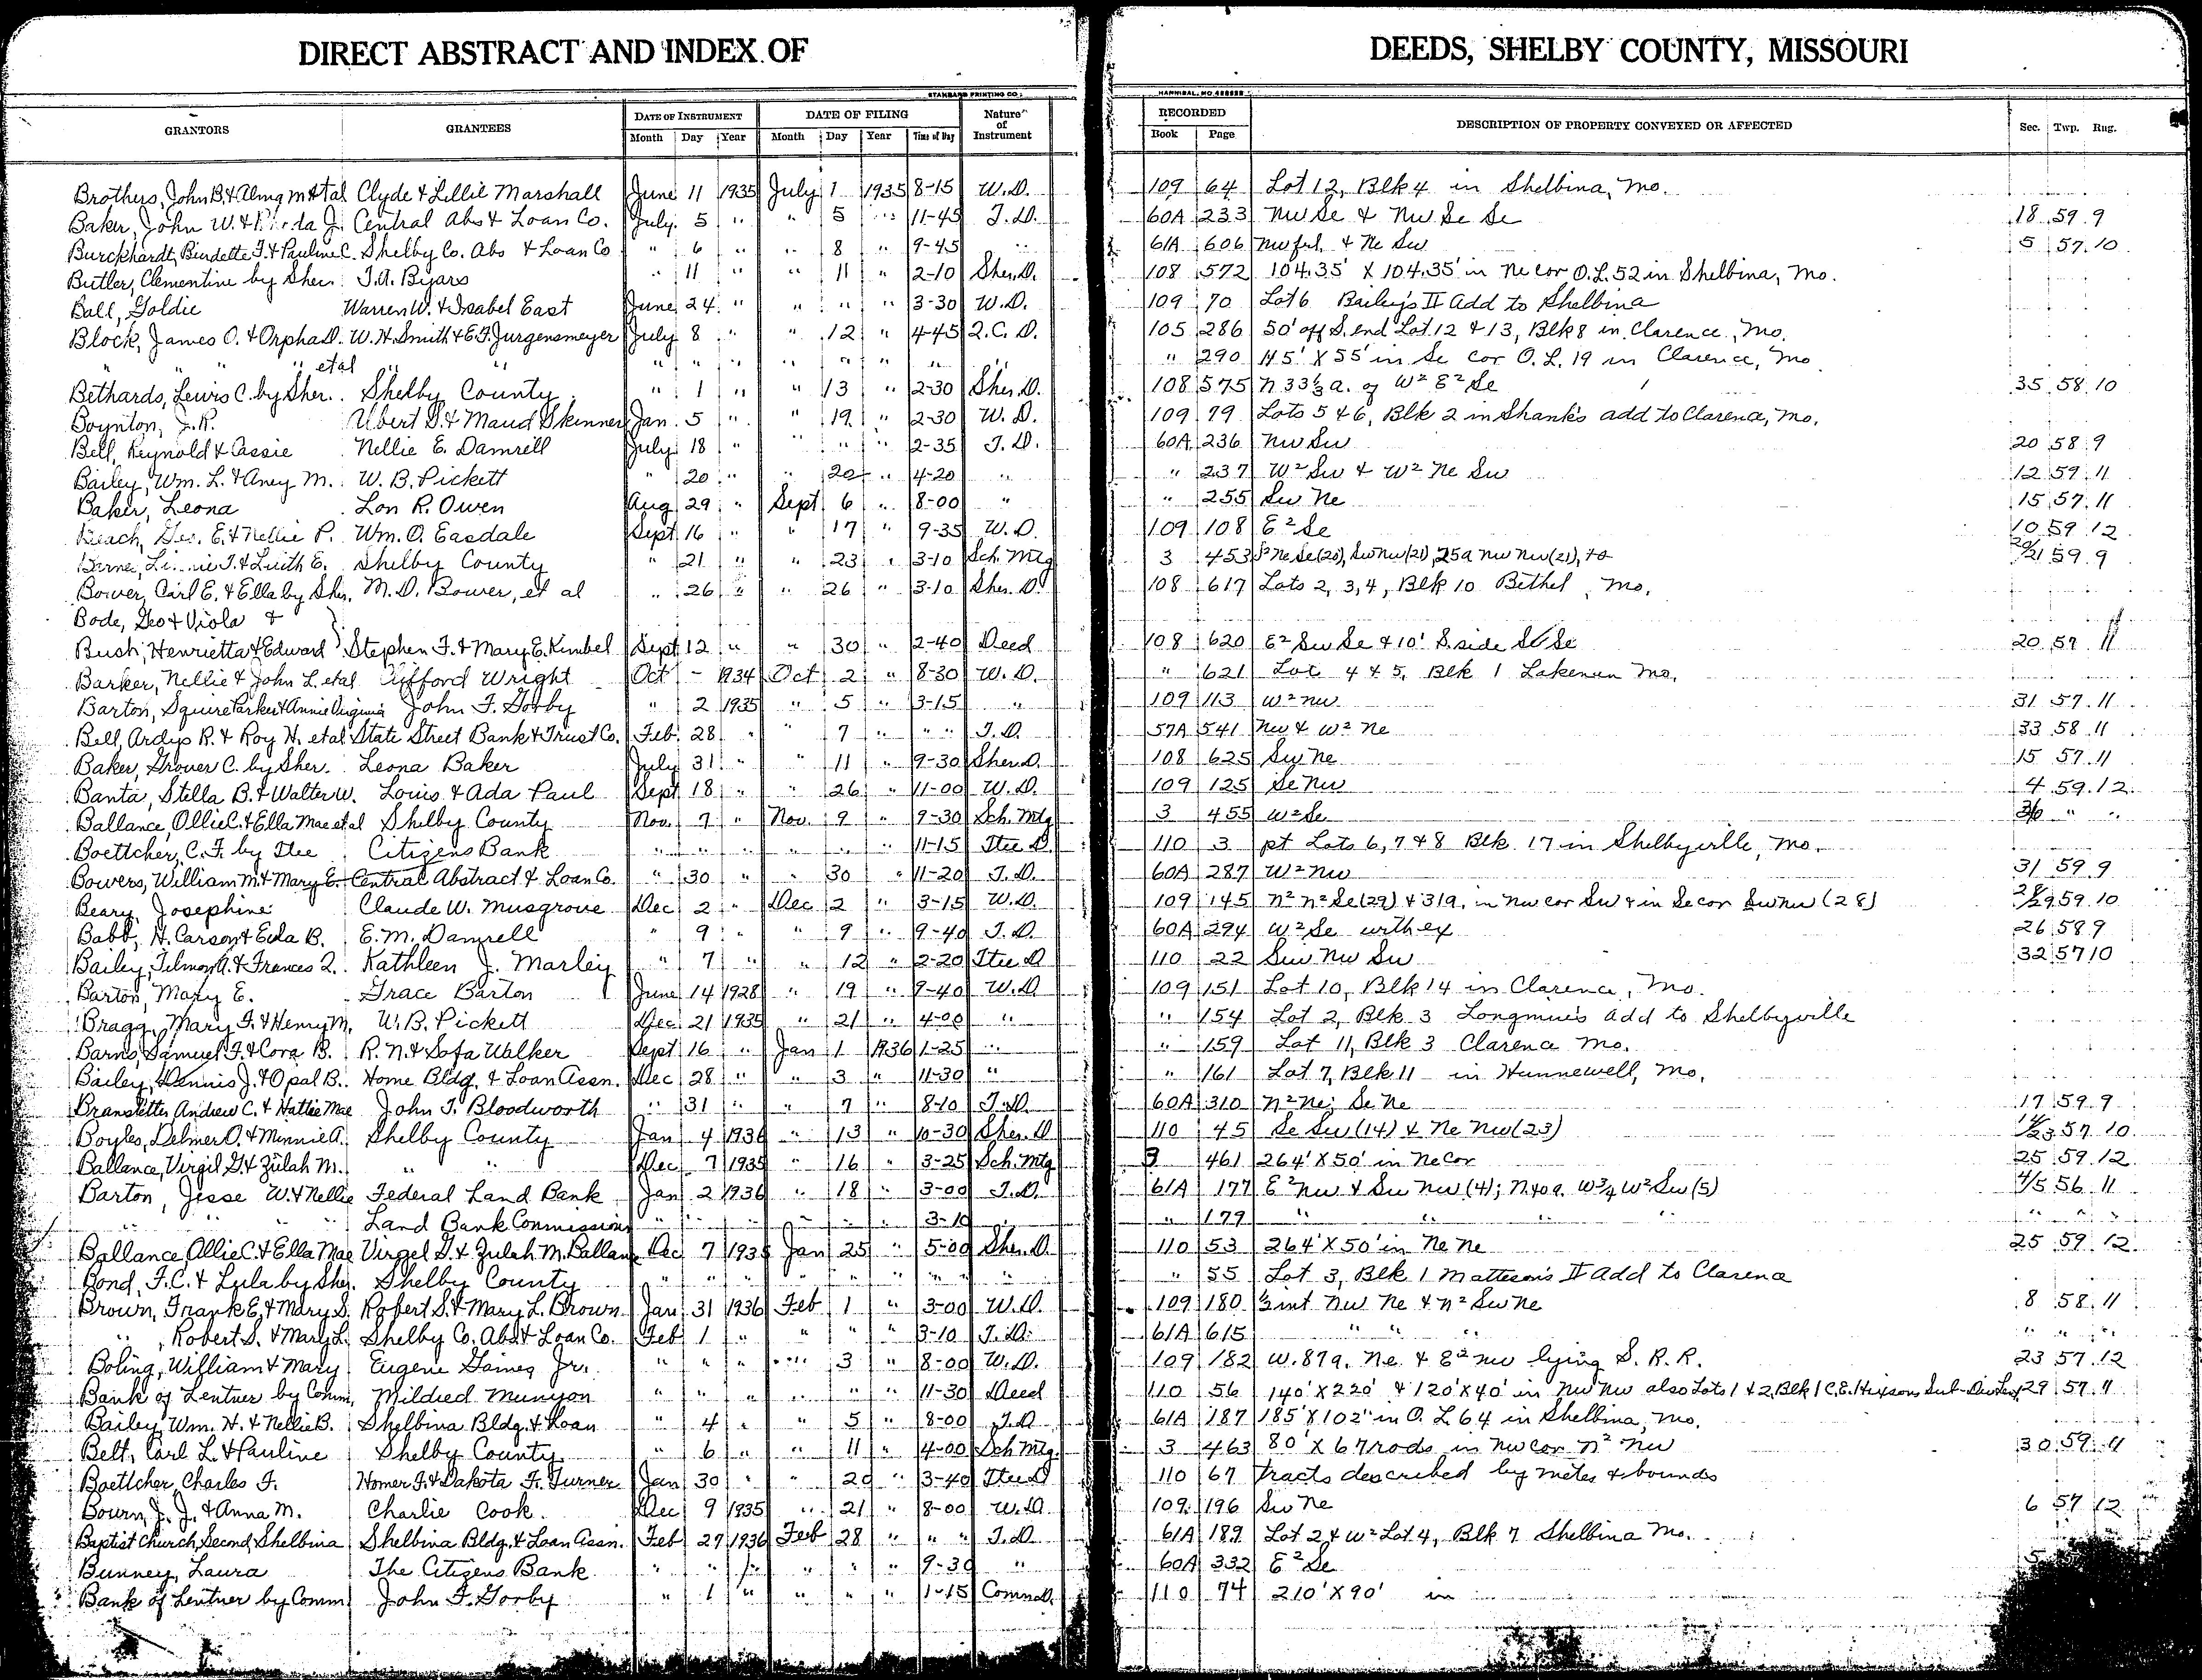 DIRECT ABSTRACT AND INDEX OF DEEDS, SHELBY COUNTY, MISSOURI
STANDARD PRINTING CO. HANNIBAL, MO.
GRANTORS GRANTEES DATE OF INSTRUMENT DATE OF FILING Nature of Instrument RECORDED DESCRIPTION OF PROPERTY CONVEYED OR AFFECTED Sec. Twp. Rng.
Month Day Year Month Day Year Time of Day Book Page
Brothers, John B. & Clyde & Lillie Marshall June 11 1935 July 1 1935 8-15 W.D. 109 64 Lot 12, Blk 4 in Shelbina, Mo.
Baker, John W. & J. Central Abs & Loan Co. July 5 " " 5 " 11-45 T.D. 60A 233 NW Se & NW Se Se 18 59 9
Burckhardt, Burdette F. & Pauline C. Shelby Co. Abs & Loan Co " 6 " " 8 " 9-45 " 61A 606 NW frl. & Ne Sw 5 57 10
Butler, Clementine by Sher. T.A. Byars " 11 " " 11 " 2-10 Sher. D. 108 572 104.35' X 104.35' in Ne cor O.L. 52 in Shelbina, Mo.
Ball, Goldie Warren W. & Isabel East June 24 " " " " 3-30 W.D. 109 70 Lot 6 Bailey's II Add to Shelbina
Block, James O. & Orpha D. W.H. Smith & E.F. Jurgensmeyer July 8 " " 12 " 4-45 Q.C.D. 105 286 50' off S. end Lot 12 & 13, Blk 8 in Clarence, Mo.
" " " etal " " " " " " " " " " 290 115' X 55' in Se cor O.L. 19 in Clarence, Mo
Bethards, Lewis C. by Sher. Shelby County " 1 " " 13 " 2-30 Sher. D. 108 575 N 33⅓ a. of W² E² Se 35 58 10
Boynton, J.R. Albert G. & Maud Skinner Jan. 5 " " 19 " 2-30 W.D. 109 79 Lots 5 & 6, Blk 2 in Shank's add to Clarence, Mo.
Bell, Reynold & Cassie Nellie E. Damrell July 18 " " " " 2-35 T.D. 60A 236 NW SW 20 58 9
Bailey, Wm. L. & Aney M. W.B. Pickett " 20 " " 20 " 4-20 " " 237 W² Sw & W² Ne Sw 12 59 11
Baker, Leona Lon R. Owen Aug 29 " Sept 6 " 8-00 " " 255 Sw Ne 15 57 11
Geo. E. & Nellie P. Wm. O. Easdale Sept 16 " " 17 " 9-35 W.D. 109 108 E² Se 10 59 12
Shelby County " 21 " " 23 " 3-10 Sch. Mtg 3 453 S² Ne Se (20), Sw Nw (21), 25a NW NW (21), to 20/21 59 9
Bower, Carl E. & Ella by Sher. M.D. Bower, et al " 26 " " 26 " 3-10 Sher. D. 108 617 Lots 2, 3, 4, Blk 10 Bethel, Mo.
Bode, Geo & Viola &
Bush, Henrietta & Edward Stephen F. & Mary E. Kimbel Sept 12 " " 30 " 2-40 Deed 108 620 E² Sw Se & 10' S. side Se Se 20 57 11
Barker, Nellie & John L. etal Clifford Wright Oct - 1934 Oct 2 " 8-30 W.D. " 621 Lot 4 & 5, Blk 1 Lakenan Mo.
Barton, Squire Parker & Annie Virginia John F. Gorby " 2 1935 " 5 " 3-15 " 109 113 W² NW 31 57 11
Bell, Ardys R. & Roy H. etal State Street Bank & Trust Co. Feb. 28 " " 7 " " " T.D. 57A 541 NW & W² Ne 33 58 11
Baker, Grover C. by Sher. Leona Baker July 31 " " 11 " 9-30 Sher. D. 108 625 Sw Ne 15 57 11
Banta, Stella B. & Walter W. Louis & Ada Paul Sept 18 " " 26 " 11-00 W.D. 109 125 Se NW 4 59 12
Ballance, Ollie C. & Ella Mae etal Shelby County Nov. 7 " Nov. 9 " 9-30 Sch. Mtg 3 455 W² Se 36 " "
Boettcher, C.F. by Ttee Citizens Bank " " " " " " 11-15 Ttee D. 110 3 pt Lots 6, 7 & 8 Blk 17 in Shelbyville, Mo.
Bowers, William M. & Mary E. Central Abstract & Loan Co. " 30 " " 30 " 11-20 T.D. 60A 287 W² NW 31 59 9
Beary, Josephine Claude W. Musgrove Dec 2 " Dec 2 " 3-15 W.D. 109 145 N² N² Se (29) & 31a. in NW cor Sw & in Se cor Sw NW (28) 28/29 59 10
Babb, H. Carson & Eula B. E.M. Damrell " 9 " " 9 " 9-40 T.D. 60A 294 W² Se with ex 26 58 9
Bailey, Tilmon A. & Frances Q. Kathleen J. Marley " 7 " " 12 " 2-20 Ttee D 110 22 Sw NW Sw 32 57 10
Barton, Mary E. Grace Barton June 14 1928 " 19 " 9-40 W.D. 109 151 Lot 10, Blk 14 in Clarence, Mo.
Bragg, Mary F. & Henry M. W.B. Pickett Dec 21 1935 " 21 " 4-00 " " 154 Lot 2, Blk 3 Longmire's Add to Shelbyville
Barns, Samuel F. & Cora B. R.N. & Sofa Walker Sept 16 " Jan 1 1936 1-25 " " 159 Lot 11, Blk 3 Clarence Mo.
Bailey, Dennis J. & Opal B. Home Bldg. & Loan Assn. Dec 28 " " 3 " 11-30 " " 161 Lot 7, Blk 11 in Hunnewell, Mo.
Branstetter, Andrew C. & Hattie Mae John T. Bloodworth " 31 " " 7 " 8-10 T.D. 60A 310 N² Ne; Se Ne 17 59 9
Boyles, Delmer O. & Minnie A. Shelby County Jan 4 1936 " 13 " 10-30 Sher. D 110 45 Se Sw (14) & Ne NW (23) 14/23 57 10
Ballance, Virgil G. & Zulah M. " " Dec 7 1935 " 16 " 3-25 Sch. Mtg 3 461 264' X 50' in Ne Cor 25 59 12
Barton, Jesse W. & Nellie Federal Land Bank Jan 2 1936 " 18 " 3-00 T.D. 61A 177 E² NW & Sw NW (4); N 40 a. W¾ W² Sw (5) 4/5 56 11
" " " Land Bank Commission " " " " " " 3-10 " " 179 " " " " " " "
Ballance, Ollie C. & Ella Mae Virgel G. & Zulah M. Ballance Dec 7 1935 Jan 25 " 5-00 Sher. D. 110 53 264' X 50' in Ne Ne 25 59 12
Bond, F.C. & Lula by Sher. Shelby County " " " " " " " " " 55 Lot 3, Blk 1 Matteson's II Add to Clarence
Brown, Frank E. & Mary S. Robert S. & Mary L. Brown Jan 31 1936 Feb 1 " 3-00 W.D. 109 180 ½ int NW Ne & N² Sw Ne 8 58 11
" , Robert S. & Mary L. Shelby Co. Abs & Loan Co. Feb 1 " " " " 3-10 T.D. 61A 615 " " " " " "
Boling, William & Mary Eugene Gaines Jr. " " " " 3 " 8-00 W.D. 109 182 W. 87a. Ne & E² NW lying S. R.R. 23 57 12
Bank of Lentner by Comm, Mildred Munyon " " " " " " 11-30 Deed 110 56 140' X 220' & 120' X 40' in NW NW also Lots 1 & 2, Blk 1 C.E. Hixsons Sub-Div 29 57 11
Bailey, Wm. H. & Nellie B. Shelbina Bldg. & Loan " 4 " " 5 " 8-00 T.D. 61A 187 185' X 102' in O.L. 64 in Shelbina, Mo.
Belt, Carl L. & Pauline Shelby County " 6 " " 11 " 4-00 Sch Mtg. 3 463 80' X 67 rods in NW cor N² NW 30 59 11
Boettcher, Charles F. Homer F. & Dakota F. Turner Jan 30 " " 20 " 3-40 Ttee D 110 67 Tracts described by metes & bounds
Bourn, J.J. & Anna M. Charlie Cook. Dec 9 1935 " 21 " 8-00 W.D. 109 196 Sw Ne 6 57 12
Baptist Church, Second, Shelbina Shelbina Bldg. & Loan Assn. Feb 27 1936 Feb 28 " " " T.D. 61A 189 Lot 2 & W² Lot 4, Blk 7 Shelbina Mo.
Bunney, Laura The Citizens Bank " " " " " " 9-30 " 60A 332 E² Se
Bank of Lentner by Comm John F. Gorby " 1 " " " " 1-15 Comm D. 110 74 210' X 90' in